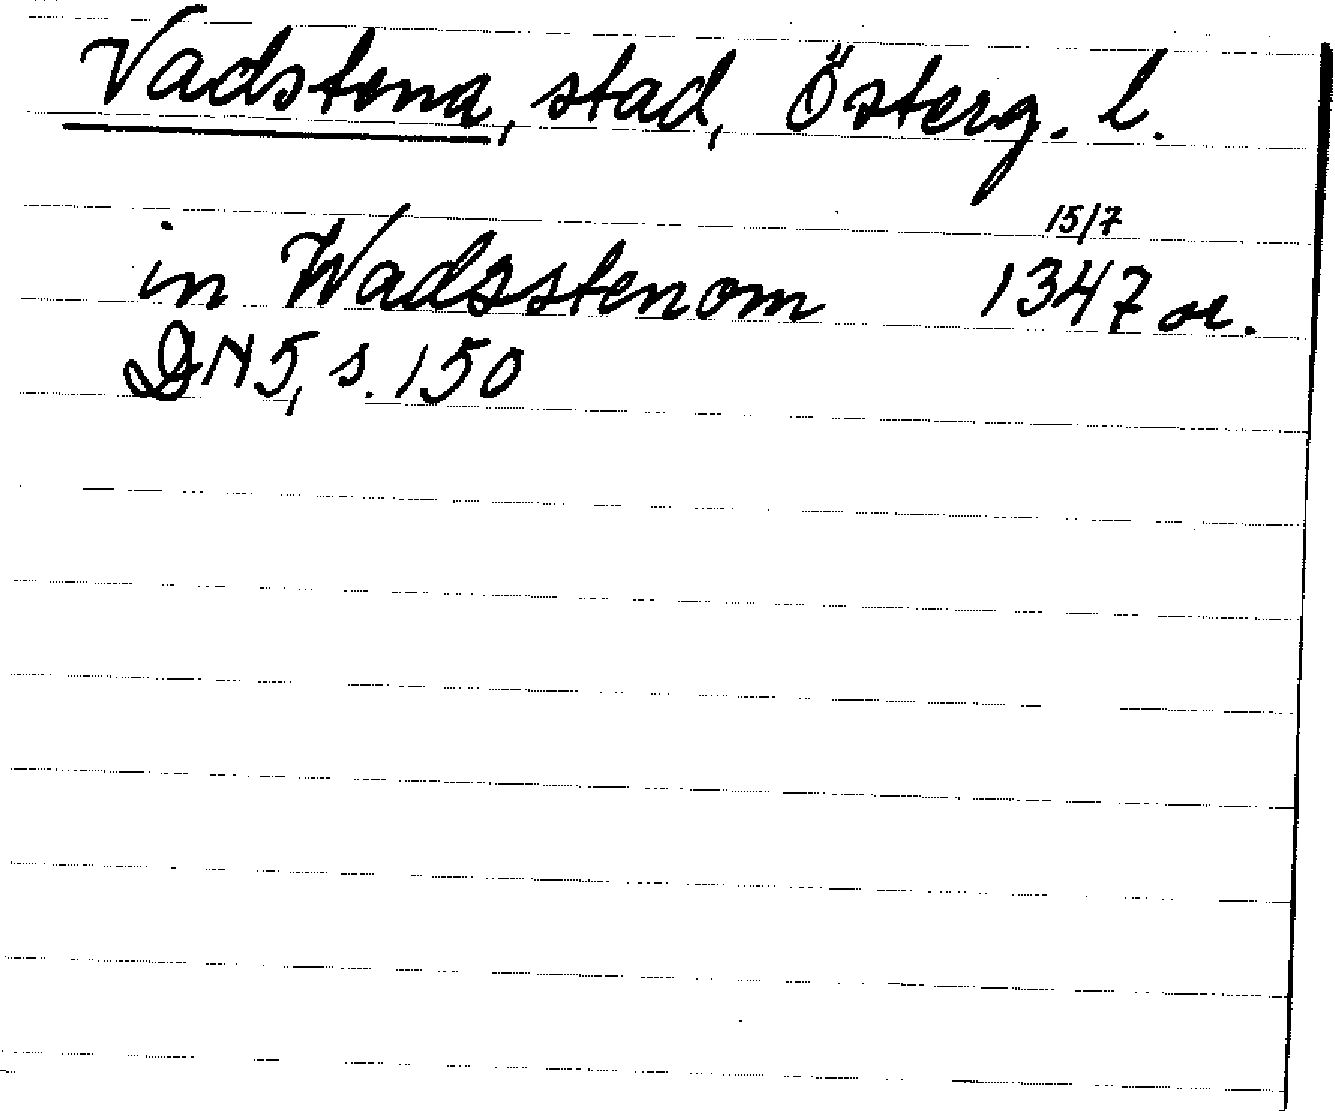 Vadstena, stad, Österg. l.
15/7
in Wadzstenom 1347 or.
DN 5, s. 150